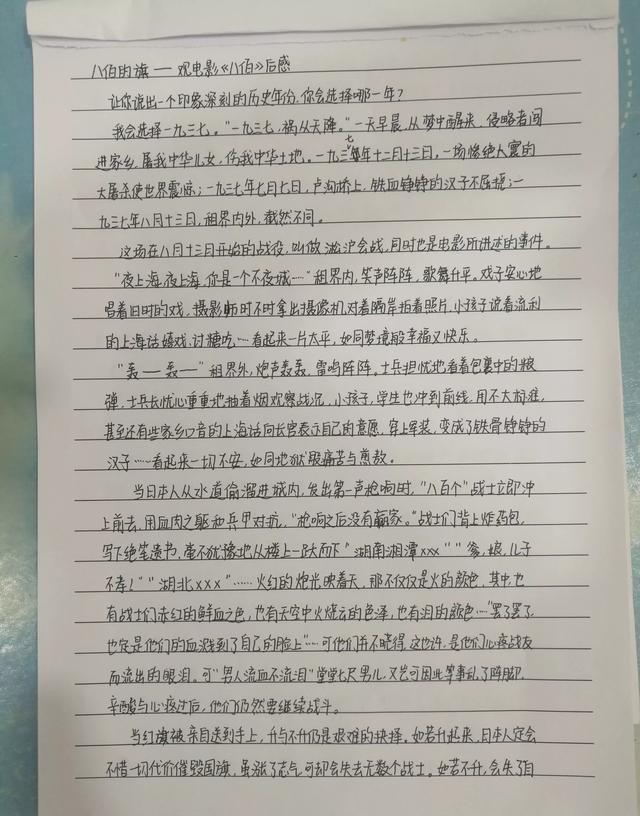 八佰的旗——观电影《八佰》后感
让你说出一个印象深刻的历史年份,你会选择哪一年?
我会选择一九三七。"一九三七,祸从天降。"一天早晨,从梦中醒来,侵略者闯
进家乡,屠我中华儿女,伤我中华土地。一九三七年十二月十三日,一场惨绝人寰的
大屠杀使世界震惊;一九三七年七月七日,卢沟桥上,铁血铮铮的汉子不屈挠;一
九三七年八月十三日,租界内外,截然不同。
这场在八月十三日开始的战役,叫做淞沪会战,同时也是电影所讲述的事件。
"夜上海,夜上海,你是一个不夜城……"租界内,笑声阵阵,歌舞升平。戏子安心地
唱着旧时的戏,摄影师时不时拿出摄像机,对着隔岸拍着照片,小孩子说着流利
的上海话嬉戏,讨糖吃……看起来一片太平,如同梦境般幸福又快乐。
"轰——轰——"租界外,炮声轰轰,雷鸣阵阵。士兵担忧地看着包裹中的粮
弹,士兵长忧心重重地抽着烟观察战况,小孩子,学生也冲到前线,用不大标准,
甚至还有些家乡口音的上海话向长官表示自己的意愿,穿上军装,变成了铁骨铮铮的
汉子……看起来一切不安,如同地狱般痛苦与煎熬。
当日本人从水道偷溜进城内,发出第一声枪响时,"八百个"战士立即冲
上前去,用血肉之躯和兵甲对抗,"枪响之后没有赢家。"战士们背上炸药包,
写下绝笔遗书,毫不犹豫地从楼上一跃而下"湖南湘潭xxx""爹,娘,儿子
不孝!""湖北xxx"……火红的炮光映着天,那不仅仅是火的颜色,其中,也
有战士们赤红的鲜血之色,也有天空中火烧云的色泽,也有泪的颜色……"罢了罢了,
也定是他们的血溅到了自己的脸上"……可他们并不晓得,这也许,是他们心疼战友
而流出的眼泪。可"男人流血不流泪"堂堂七尺男儿,又岂可因此等事乱了阵脚,
辛酸与心疼过后,他们仍然要继续战斗。
当红旗被亲自送到手上,升与不升仍是艰难的抉择。如若升起来,日本人定会
不惜一切代价摧毁国旗,虽涨了志气,可却会失去无数个战士。如若不升,会失了自